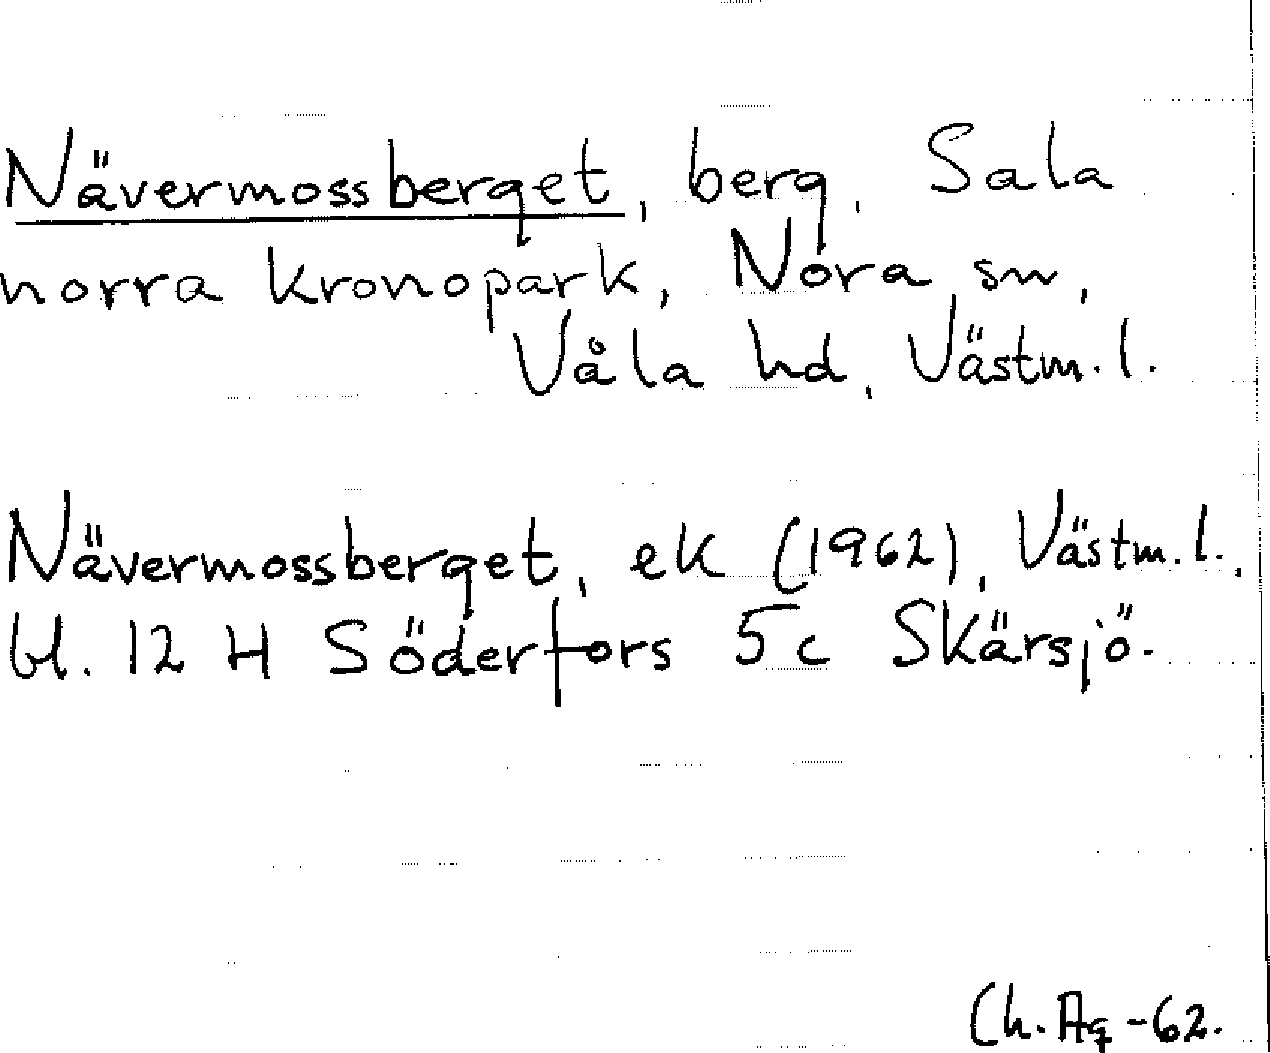 Nävermossberget, berg, Sala
norra kronopark, Nora sn,
Våla hd, Västm. l.
Nävermossberget, ek (1962), Västm. l.,
bl. 12 H Söderfors 5c Skärsjö.
Ch. Ag -62.